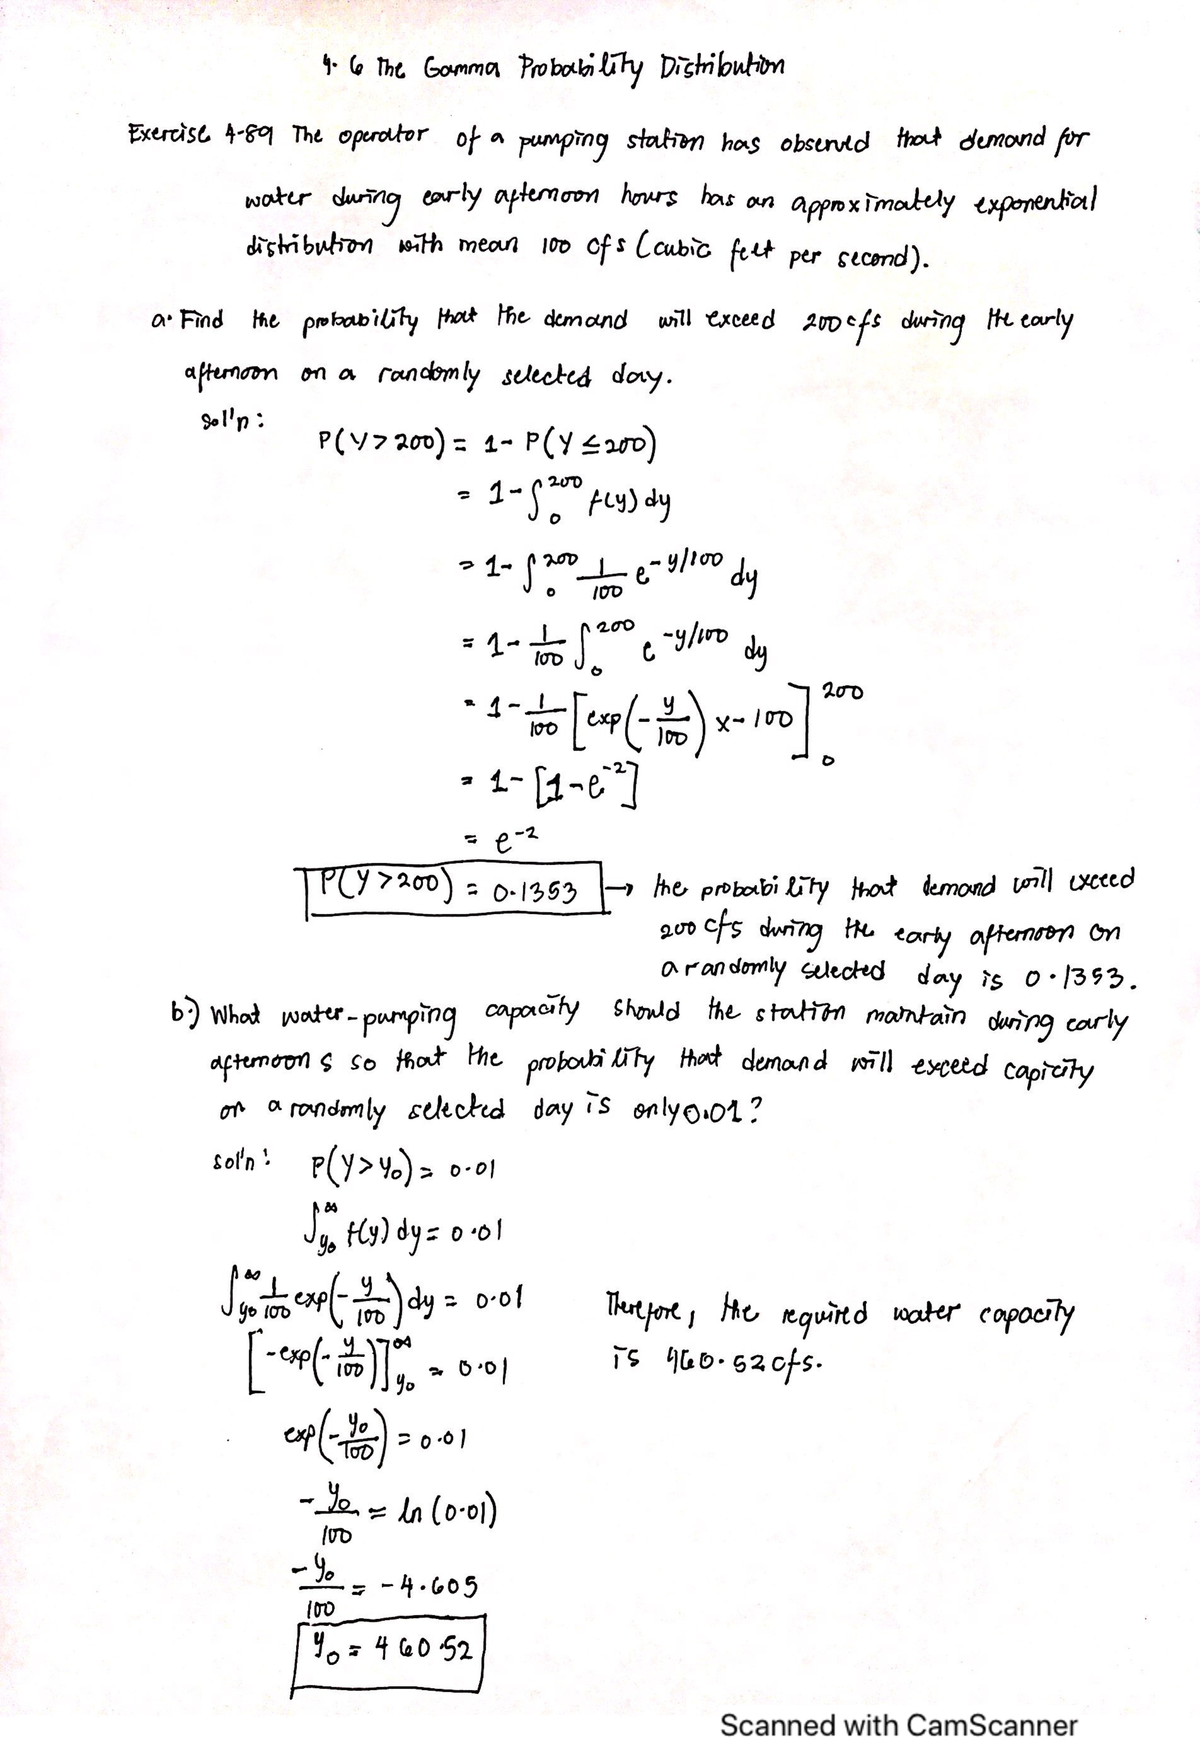 4.6 The Gamma Probability Distribution
Exercise 4-89 The operator of a pumping station has observed that demand for
water during early afternoon hours has an approximately exponential
distribution with mean 100 cfs (cubic feet per second).
a. Find the probability that the demand will exceed 200 cfs during the early
afternoon on a randomly selected day.
Sol'n:
P(Y > 200) = 1 - P(Y ≤ 200)
= 1 - ∫₀²⁰⁰ f(y) dy
= 1 - ∫₀²⁰⁰ 1/100 e^(-y/100) dy
= 1 - 1/100 ∫₀²⁰⁰ e^(-y/100) dy
= 1 - 1/100 [exp(-y/100) x - 100]₀²⁰⁰
= 1 - [1 - e⁻²]
= e⁻²
P(Y > 200) = 0.1353 → the probability that demand will exceed
200 cfs during the early afternoon on
a randomly selected day is 0.1353.
b.) What water-pumping capacity should the station maintain during early
afternoons so that the probability that demand will exceed capicity
on a randomly selected day is only 0.01?
sol'n: P(Y > y₀) = 0.01
∫_y₀^∞ f(y) dy = 0.01
∫_y₀^∞ 1/100 exp(-y/100) dy = 0.01
[-exp(-y/100)]_y₀^∞ = 0.01
exp(-y₀/100) = 0.01
-y₀/100 = ln (0.01)
-y₀/100 = -4.605
y₀ = 460.52
Therefore, the required water capacity
is 460.52 cfs.
Scanned with CamScanner